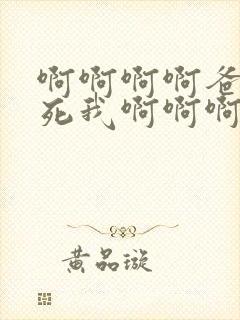 啊啊啊啊爸
死我啊啊啊
黄品璇